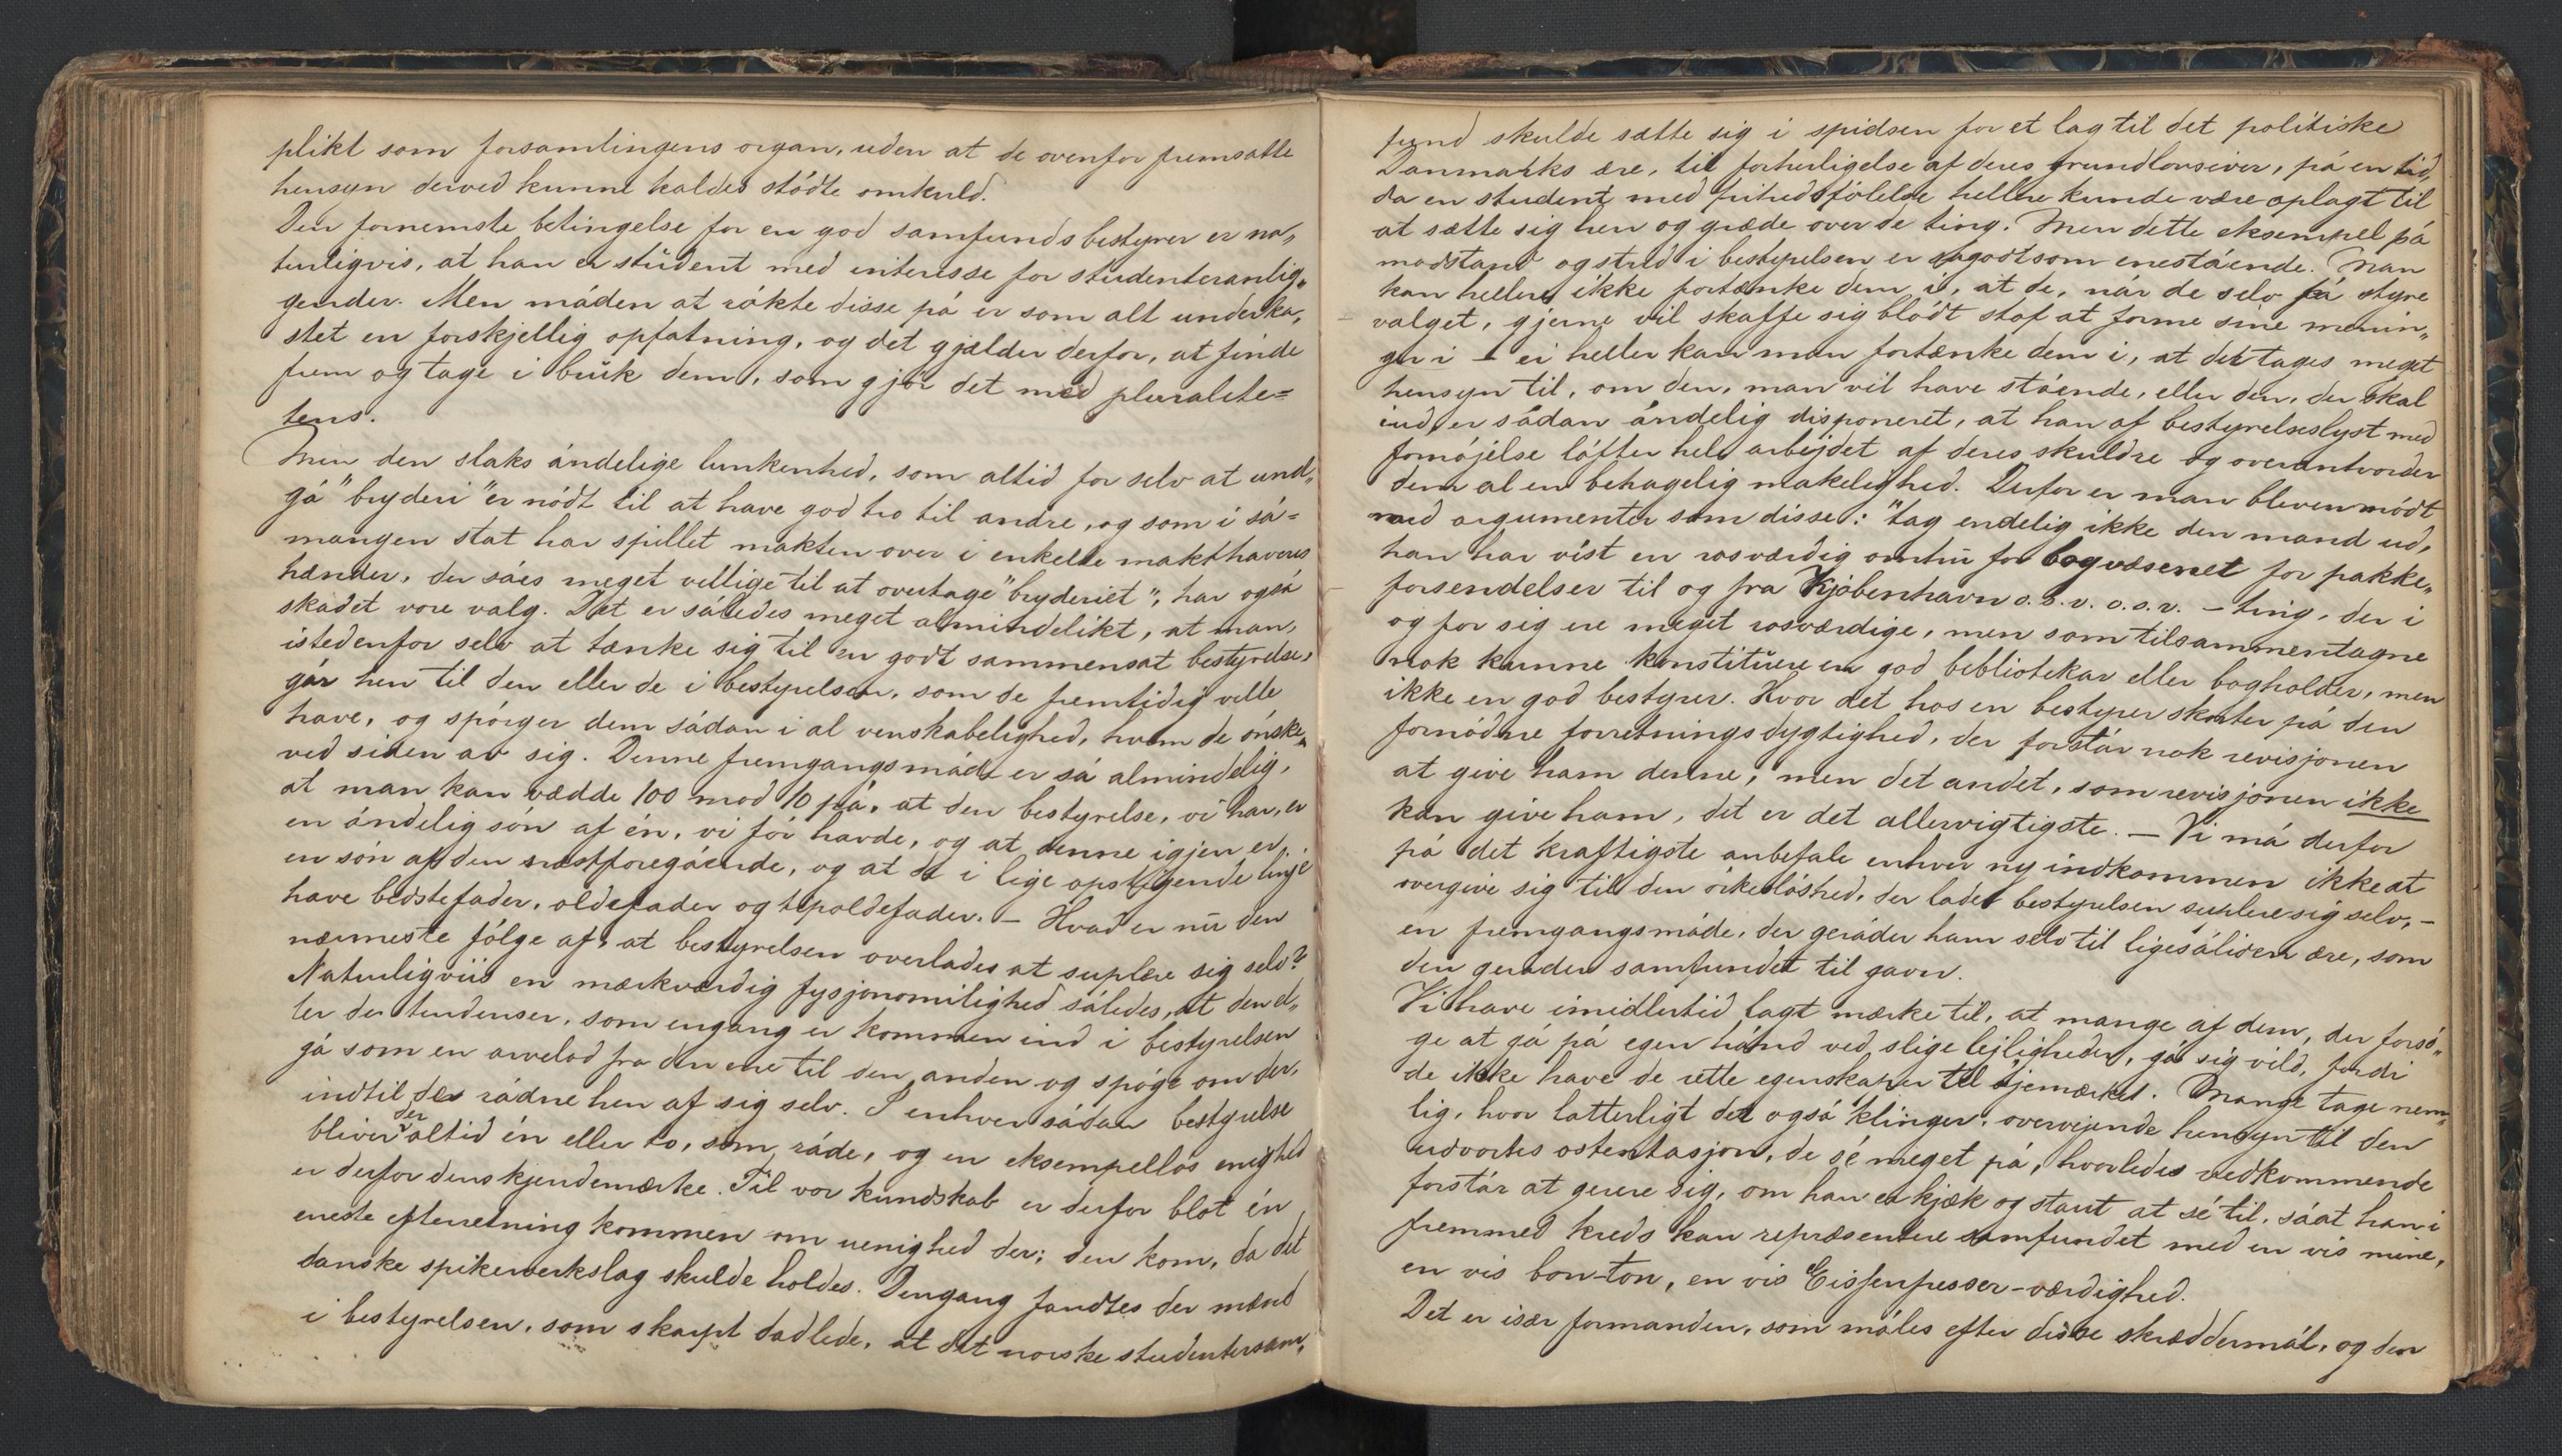 plikt som forsamlingens organ, uden at de ovenfor fremsatte
hensyn derved kunne kaldes stødte omkuld.
Den fornemste betingelse for en god samfundsbestyrer er na„
turligvis, at han er student med interesse for studenteranlig„
gender. Men måden at røkte disse på er som alt underka„
stet en forskjellig opfatning, og det gjælder derfor, at finde
frem og tage i brŭk dem, som gjør det med pluralite=
tens.
Men den slaks åndelige lunkenhed, som altid for selv at und„
gå "bryderi" er nødt til at have god tro til andre, og som i så=
mangen stat har spillet makten over i enkelte makthaveres
hænder, der såes meget villige til at overtage "bryderiet", har også
skadet vore valg. Det er således meget almindelikt, at man,
istedenfor selv at tænke sig til en godt sammensat bestyrelse,
går hen til den eller de i bestyrelsen, som de fremtidig ville
have, og spørger dem sådan i al venskabelighed, hvem de ønske
ved siden av sig. Denne fremgangsmåde er så almindelig,
at man kan vædde 100 mod 10 på, at den bestyrelse, vi har, er
en åndelig søn af én, vi før havde, og at denne igjen er
en søn af den næstforegående, og at de i lige opstigende linje
have bedstefader, oldefader og tipoldefader. – Hvad er nŭ den
nærmeste følge af, at bestyrelsen overlades at suplere sig selv?
Naturligviis en mærkværdig fysjonomilighed således, at den el„
ler de tendenser, som engang er kommen ind i bestyrelsen
gå som en arvelod fra den ene til den anden og spøge om der,
indtil de rådne hen af sig selv. I enhver sådan bestyrelse
bliver der altid én eller to, som råde, og en eksempelløs enighed
er derfor dens kjendemærke. Til vor kundskab er derfor blot én
eneste efterretning kommen om uenighed der; den kom, da det
danske spikerverkslag skulde holdes. Dengang fandtes der mænd
i bestyrelsen, som skarpt dadlede, at det norske studentersam„
fund skulde sætte sig i spidsen for et lag til det politiske
Danmarks ære, til forherligelse af deres grundlovsgiver, på en tid,
da en student med frihedsfølelse hellere kunde være oplagt til
at sætte sig hen og græde over de ting. Men dette eksempel på
modstand og strid i bestyrelsen er sågodtsom enestående. Man
kan hellere ikke fortænke dem i, at de, når de selv få styre
valget, gjerne vil skaffe sig blødt stof at forme sine menin„
ger i – ei heller kan man fortænke dem i, at det tages meget
hensyn til, om den, man vil have stående, eller den, der skal
ind, er sådan åndelig disponeret, at han af bestyrelseslyst med
fornøjelse løfter hele arbejdet af deres skuldre og overantvorder
dem al en behagelig makelighed. Derfor er man bleven mødt
med argumenter som disse: "tag endelig ikke den mand ud,
han har vist en rosværdig omhŭ for bogvæsenet for pakke„
forsendelser til og fra Kjøbenhavn o.s.v. o.s.v. – ting, der i
og for sig ere meget rosværdige, men som tilsammentagne
nok kunne konstitŭere en god bibliotekar eller bogholder, men
ikke en god bestyrer. Hvor det hos en bestyrer skorter på den
fornødne forretningsdygtighed, der forstår nok revisjonen
at give ham denne, men det andet, som revisjonen ikke
kan give ham, det er det allervigtigste. – Vi må derfor
på det kraftigste anbefale enhver ny indkommen ikke at
overgive sig til den ørkesløshed, der lader bestyrelsen suplere sig selv, –
en fremgangsmåde, der geråder ham selv til ligesåliden ære, som
den geråder samfundet til gavn.
Vi have imidlertid lagt mærke til, at mange af dem, der forsø„
ge at gå på egen hånd ved slige lejligheder, gå sig vild, fordi
de ikke have de rette egenskaper til øjemærket. Mange tage nem„
lig, hvor latterligt det også klinger, overvejende hensyn til den
udvortes ostentasjon, de sé meget på, hvorledes vedkommende
forstår at gerere sig, om han er kjæk og staut at sé til, såat han i
fremmed kreds kan repræsentere samfundet med en vis mine,
en vis bon-ton, en vis Eisenfresser-værdighed.
Det er især formanden, som måles efter disse skræddermål, og den